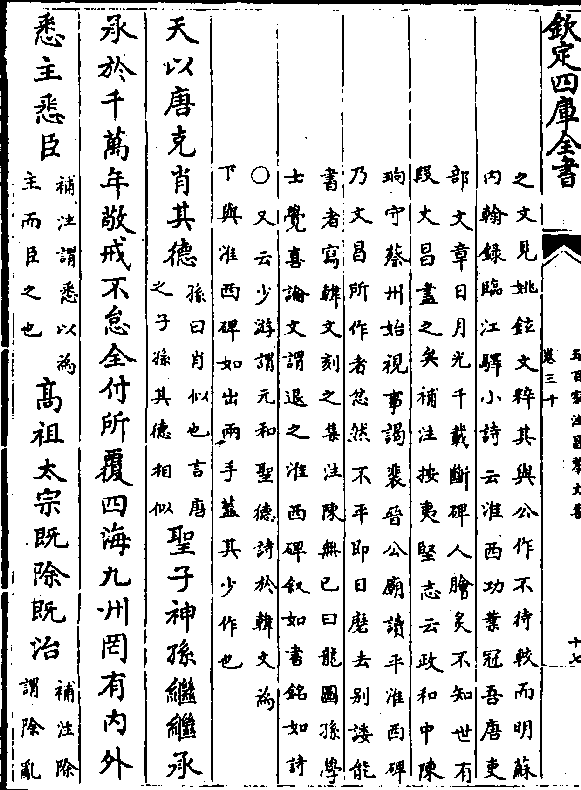 欽定四庫全書
卷三十
十七
之文見姚鉉文粹其與公作不待較而明蘇
内翰錄臨江驛小詩云淮西功業冠吾唐吏
部文章日月光千載斷碑人膾炙不知世有
段文昌盡之矣補注按夷堅志云政和中陳
珦守蔡州始視事謁裴晉公廟讀平淮西碑
乃文昌所作者忿然不平即日磨去别諉能
書者寫韓文刻之集注陳無已曰龍圖孫學
士覺喜論文謂退之淮西碑叙如書銘如詩
〇又云少游謂元和聖德詩於韓文為
下與淮西碑如出兩手蓋其少作也
天以唐克肖其德孫曰肖似也言唐
之子孫其德相似聖子神孫繼繼承
承於千萬年敬戒不怠全付所覆四海九州罔有内外
悉主悉臣補注謂悉以為
主而臣之也高祖太宗既除既治補注除
謂除亂